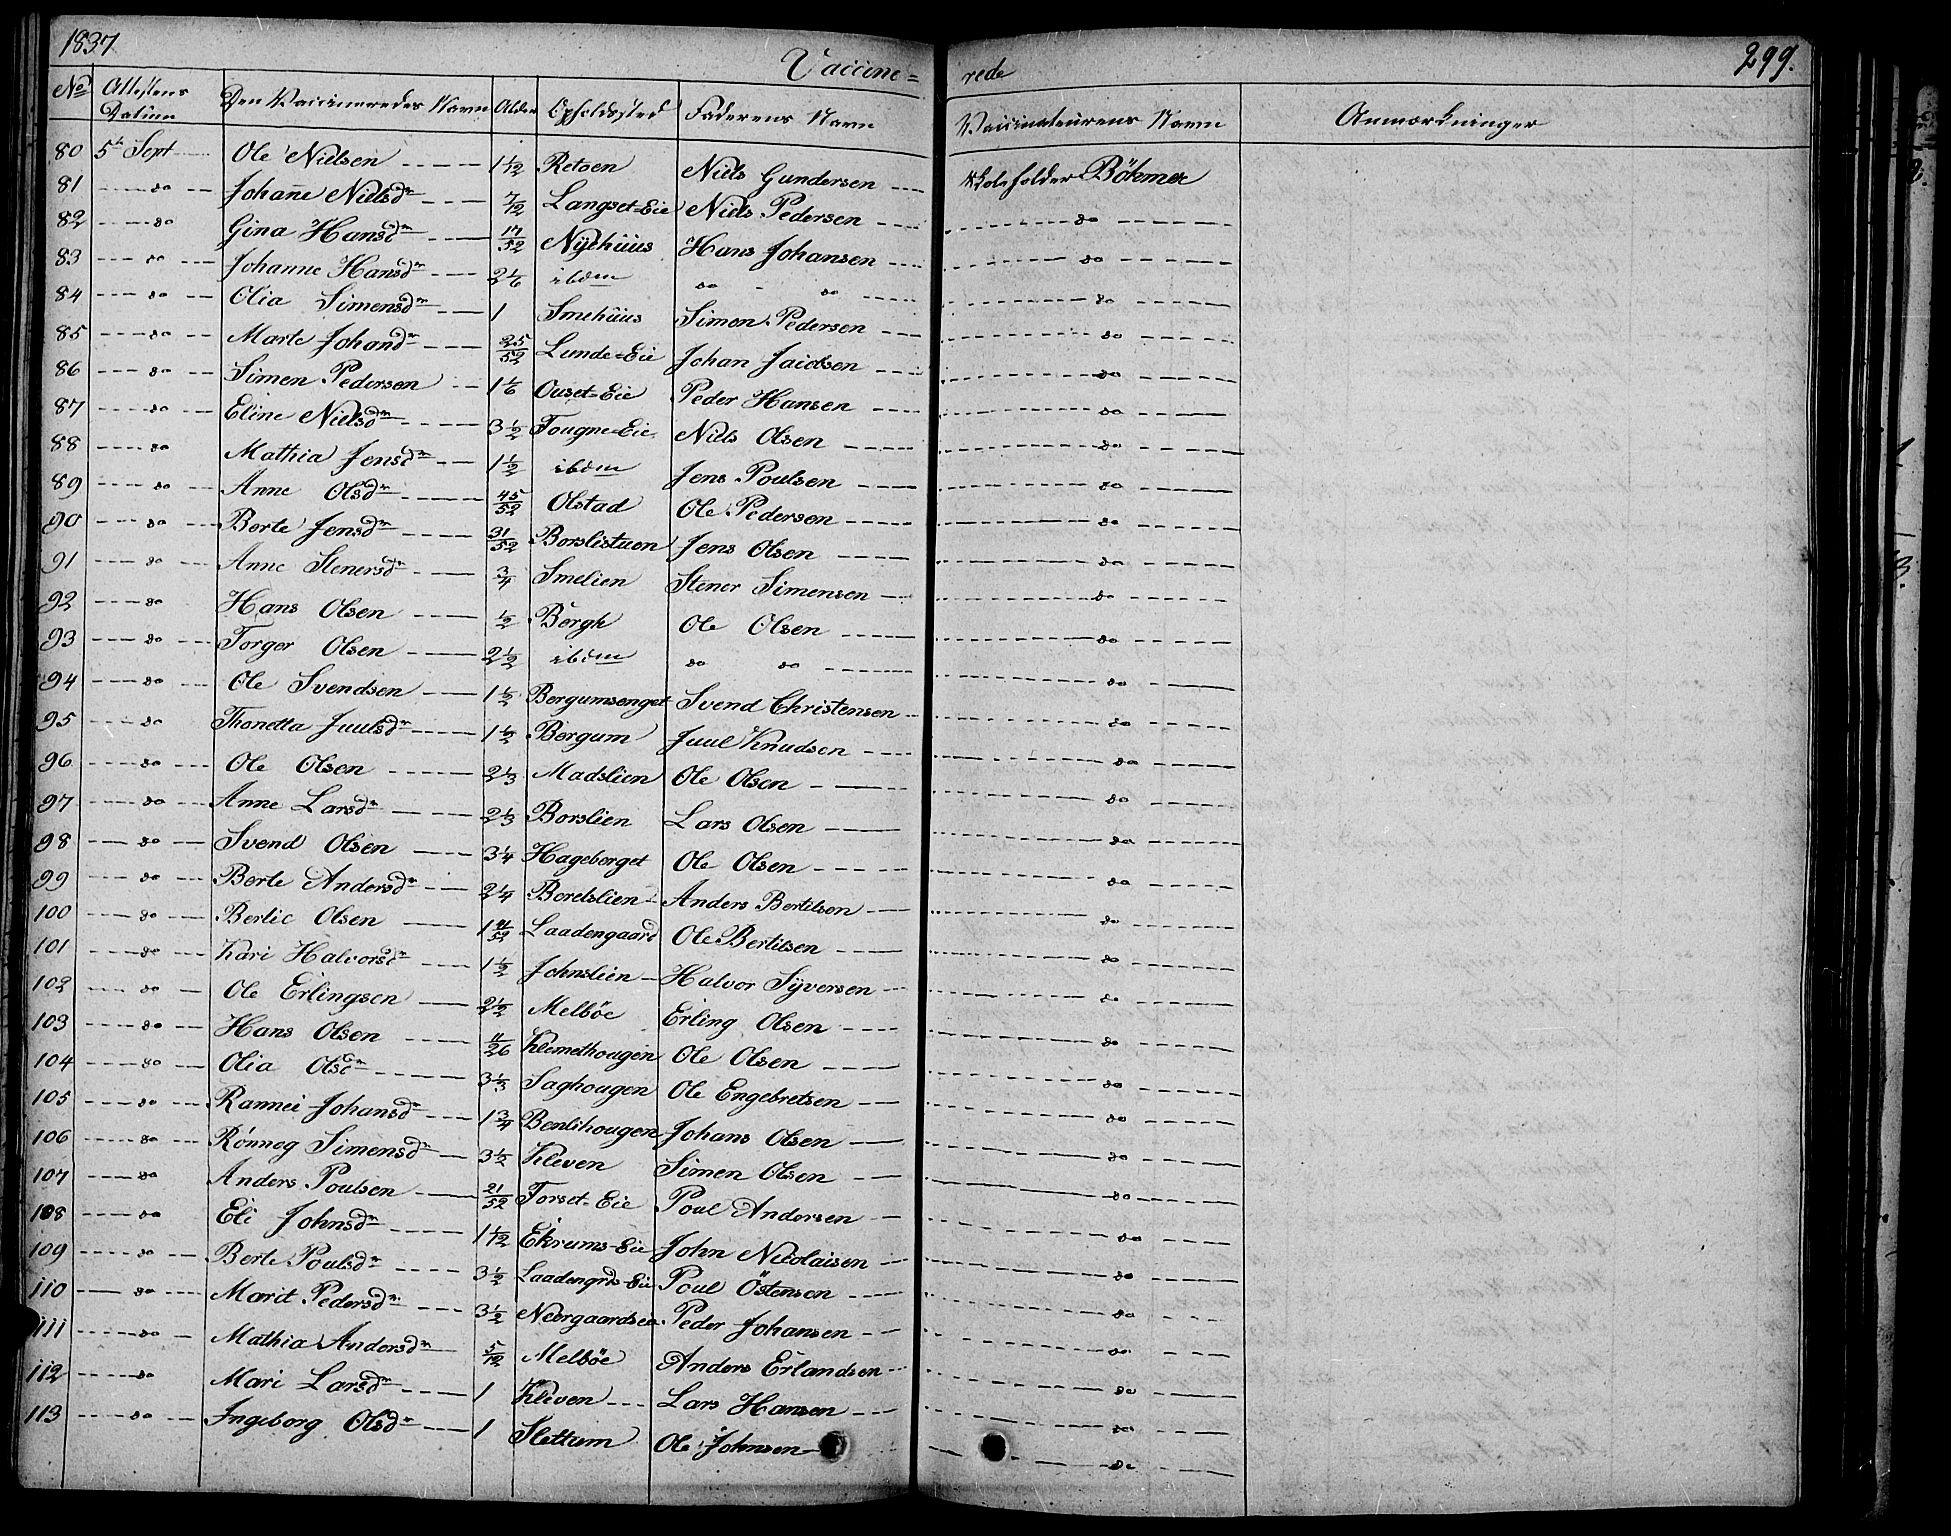 1837 Vaccine= rede 299.
No Attestens Datum Den Vaccineredes Navn Alder Opholdssted Faderens Navn Vaccinateurens Navn Anmærkninger
80 5te Sept Ole Nielsen 1 1/12 Retoen Niels Gundersen Skoleholder Böhmer
81 do Johanne Nielsdr 7/12 Langset=Eie Niels Pedersen do
82 do Gina Hansdr 17/52 Nyehuus Hans Johansen do
83 do Johanne Hansdr 2 1/6 ibdm do do do
84 do Olia Simensdr 1 Smehuus Simon Pedersen do
85 do Marte Johandr 25/52 Lunde=Eie Johan Jacobsen do
86 do Simen Pedersen 1 1/6 Ouset=Eie Peder Hansen do
87 do Eline Nielsdr 3 1/2 Fougne=Eie Niels Olsen do
88 do Mathia Jensdr 1 1/2 ibdm Jens Poulsen do
89 do Anne Olsdr 45/52 Olstad Ole Pedersen do
90 do Berte Jensdr 31/52 Borslistuen Jens Olsen do
91 do Anne Stenersdr 3/4 Smelien Stener Simensen do
92 do Hans Olsen 1/2 Bergh Ole Olsen do
93 do Torger Olsen 2 1/2 ibdm do do do
94 do Ole Svendsen 1 1/2 Bergumsenget Svend Christensen do
95 do Thonetta Juulsdr 1 1/2 Bergum Juul Knudsen do
96 do Ole Olsen 2 1/3 Madslien Ole Olsen do
97 do Anne Larsdr 2 1/3 Borslien Lars Olsen do
98 do Svend Olsen 3 1/4 Hageberget Ole Olsen do
99 do Berte Andersdr 2 1/4 Boretslien Anders Bertilsen do
100 do Bertie Olsen 1 41/52 Laadengaard Ole Bertilsen do
101 do Kari Halvorsdr 1 1/2 Johnslien Halvor Syversen do
102 do Ole Erlingsen 2 1/2 Melböe Erling Olsen do
103 do Hans Olsen 11/26 Klemethougen Ole Olsen do
104 do Olia Olsdr 3 1/3 Saghougen Ole Engebretsen do
105 do Rannei Johansdr 1 3/4 Benlihougen Johans Olsen do
106 do Rönnog Simensdr 3 1/2 Kleven Simen Olsen do
107 do Anders Poulsen 21/52 Torset=Eie Poul Andersen do
108 do Eli Johnsdr 1 1/12 Ekrums=Eie John Nicolaisen do
109 do Berte Poulsdr 3 1/2 Laadengrds=Eie Poul Östensen do
110 do Marit Pedersdr 3 1/2 Neergaardseie Peder Johansen do
111 do Mathia Andersdr 5/12 Melböe Anders Erlandsen do
112 do Mari Larsdr 1 Kleven Lars Hansen do
113 do Ingeborg Olsdr 1 Slettum Ole Johnsen do